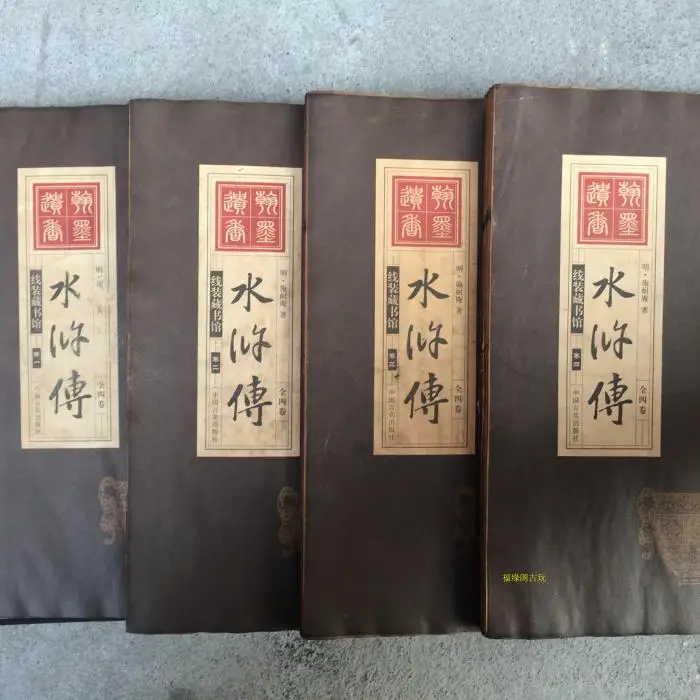 翰墨
遺香
水浒傳
线装藏书馆
卷一
全四卷
中国言实出版社
翰墨
遺香
明·施耐庵 著
水浒傳
线装藏书馆
卷二
全四卷
中国言实出版社
翰墨
遺香
明·施耐庵 著
水浒傳
线装藏书馆
卷三
全四卷
中国言实出版社
翰墨
遺香
明·施耐庵 著
水浒傳
线装藏书馆
卷四
全四卷
中国言实出版社
福缘阁古玩